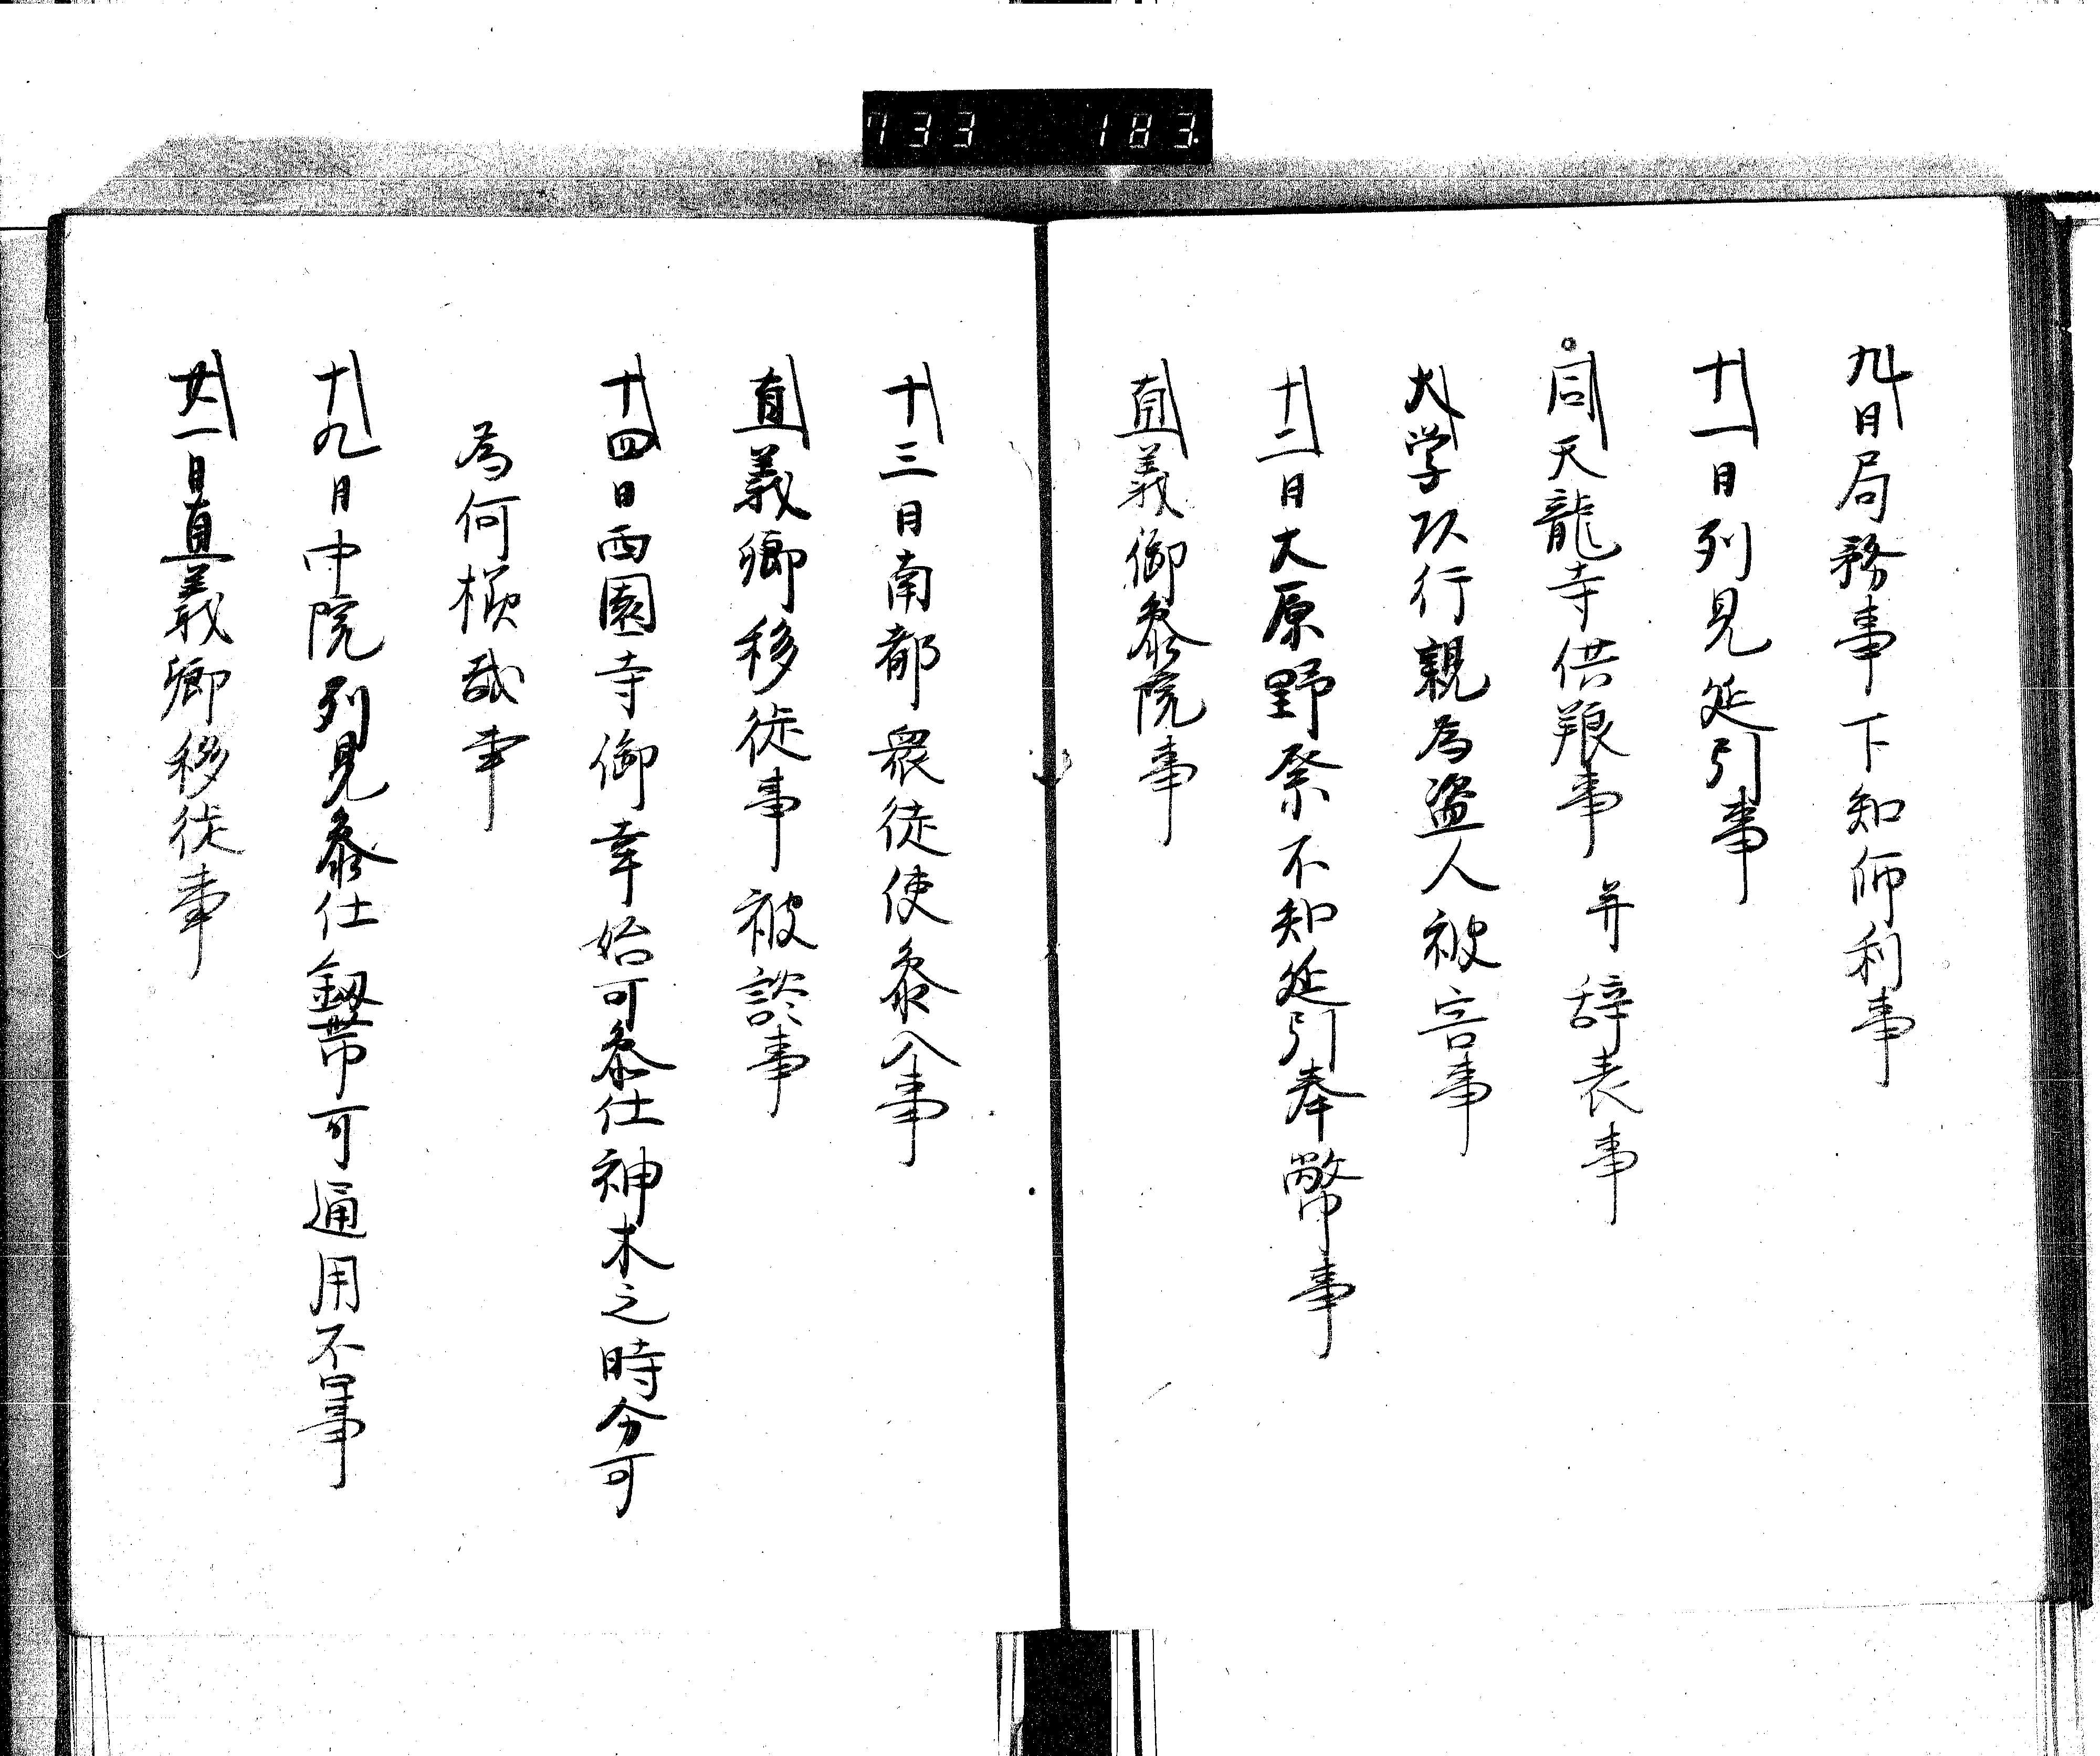 733 183
九日局務事下知師利事
十一日列見延引事
同天龍寺供養事 并辞表事
大学頭行親為盗人被害事
十二日大原野祭不知延引奉幣事
直義卿参院事
十三日南都衆徒使参入事
直義卿移徙事被談事
十四日西園寺御幸始可参仕神木之時分可
為何様哉事
十九日中院列見参仕釼帯可通用不事
廿一日直義卿移徙事